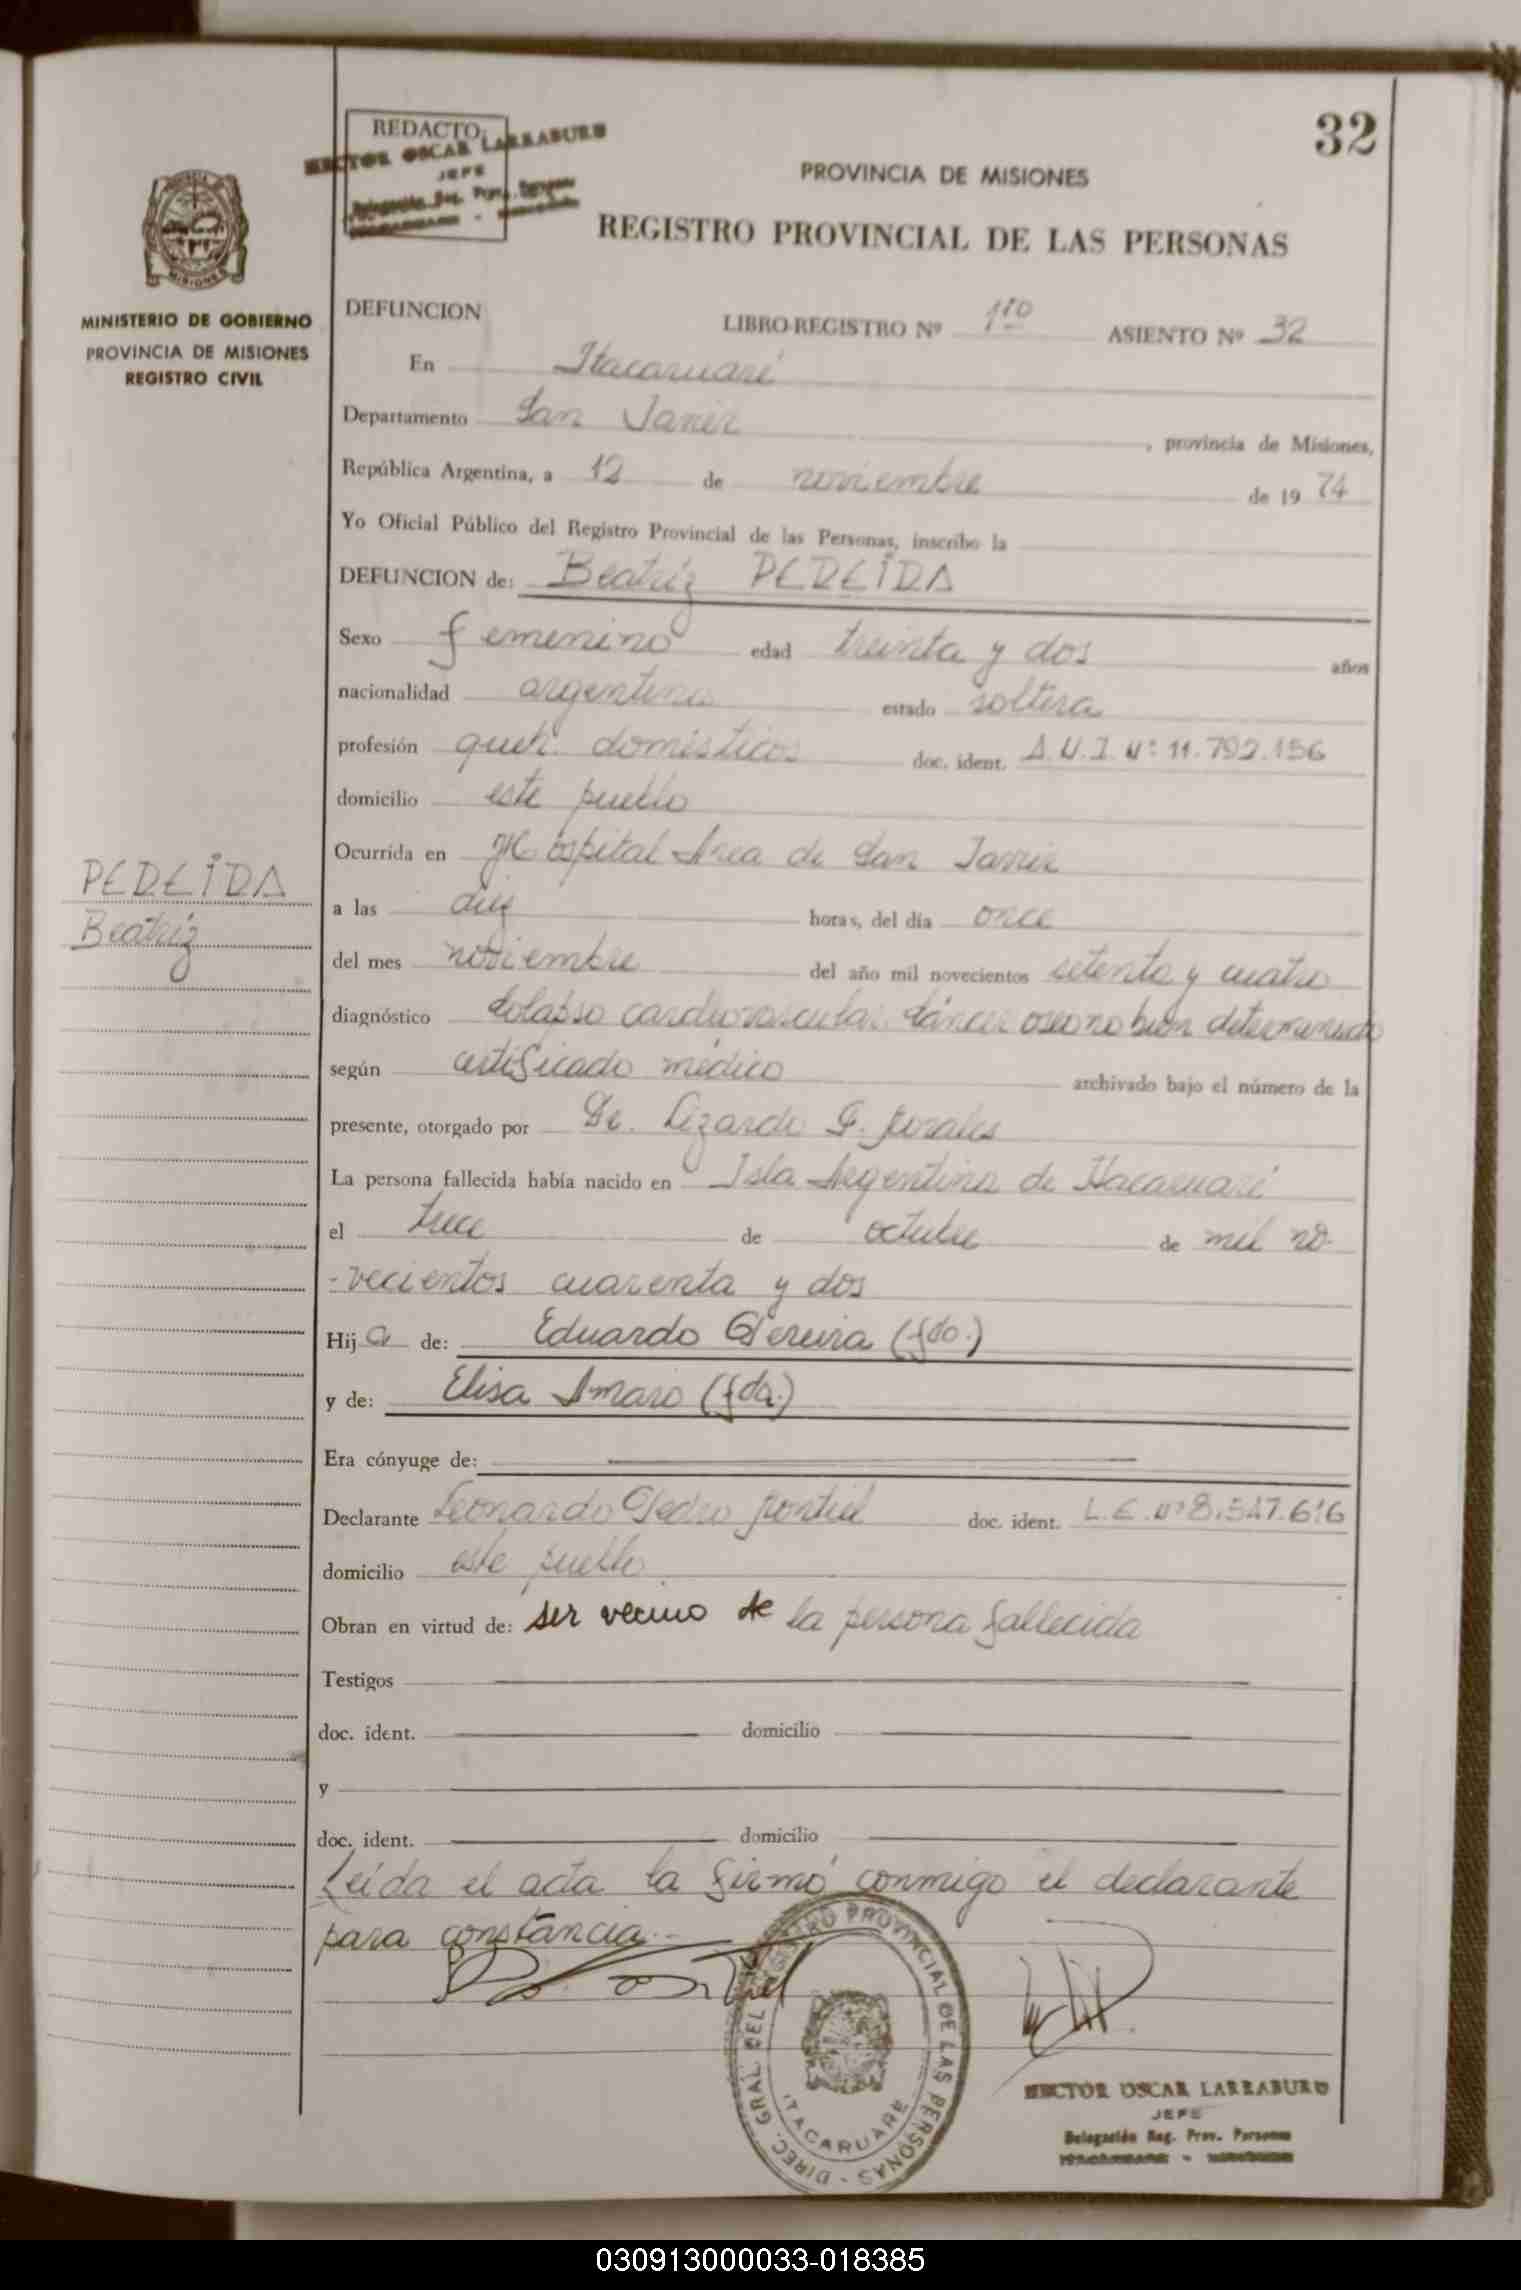 32
REDACTO:
HECTOR OSCAR LARRABURU
JEFE
Delegación Reg. Prov. Personas
PROVINCIA DE MISIONES
REGISTRO PROVINCIAL DE LAS PERSONAS
MISIONES
MINISTERIO DE GOBIERNO
PROVINCIA DE MISIONES
REGISTRO CIVIL
DEFUNCION
LIBRO-REGISTRO Nº 1ro ASIENTO Nº 32
En Itacaruaré
Departamento San Javier, provincia de Misiones,
República Argentina, a 12 de noviembre de 1974
Yo Oficial Público del Registro Provincial de las Personas, inscribo la
DEFUNCION de: Beatriz PEREIRA
Sexo femenino edad treinta y dos años
nacionalidad argentina estado soltera
profesión queh. domésticos doc. ident. D.N.I. Nº: 11.792.156
domicilio este pueblo
Ocurrida en Hospital Area de San Javier
PEREIRA
Beatriz
a las diez horas, del día once
del mes noviembre del año mil novecientos setenta y cuatro
diagnóstico Colapso cardiovascular. Cáncer oseo no bien determinado
según certificado médico archivado bajo el número de la
presente, otorgado por Dr. Lizardo G.
La persona fallecida había nacido en Isla Argentina de Itacaruaré
el trece de octubre de mil no-
-vecientos cuarenta y dos
Hija de: Eduardo Pereira (fdo.)
y de: Elisa Amaro (fda.)
Era cónyuge de:
Declarante Leonardo Pedro doc. ident. L.E. Nº 8.547.616
domicilio este pueblo
Obran en virtud de: ser vecino de la persona fallecida
Testigos
doc. ident. domicilio
y
doc. ident. domicilio
Leída el acta la firmó conmigo el declarante
para constancia.-
DIREC. GRAL. DEL REGISTRO PROVINCIAL DE LAS PERSONAS -
ITACARUARE
HECTOR OSCAR LARRABURU
JEFE
Delegación Reg. Prov. Personas
030913000033-018385